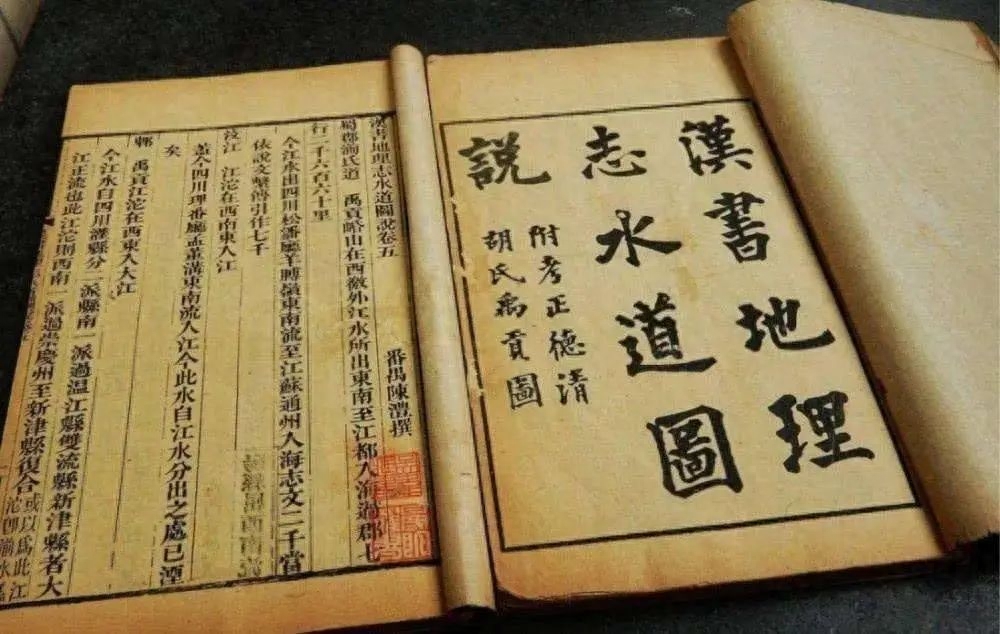 漢書地理
志水道圖
說
附考正德清
胡氏禹貢圖
漢書地理志水道圖說卷五
番禺陳澧撰
蜀郡湔氐道 禹貢㟭山在西徼外江水所出東南至江都入海過郡七
行二千六百六十里
今江水出四川松潘廳羊膊嶺東南流至江蘇通州入海志文二千當
依說文繫傳引作七千
汶江 江沱在西南東入江
蓋今四川理番廳孟董溝東南流入江今此水自江水分出之處已湮
矣
郫 禹貢江沱在西東入大江
今江水自四川灌縣分二派縣南一派過溫江縣雙流縣新津縣者大
江正流也此江沱則西南一派過崇慶州至新津縣復合或以爲此江